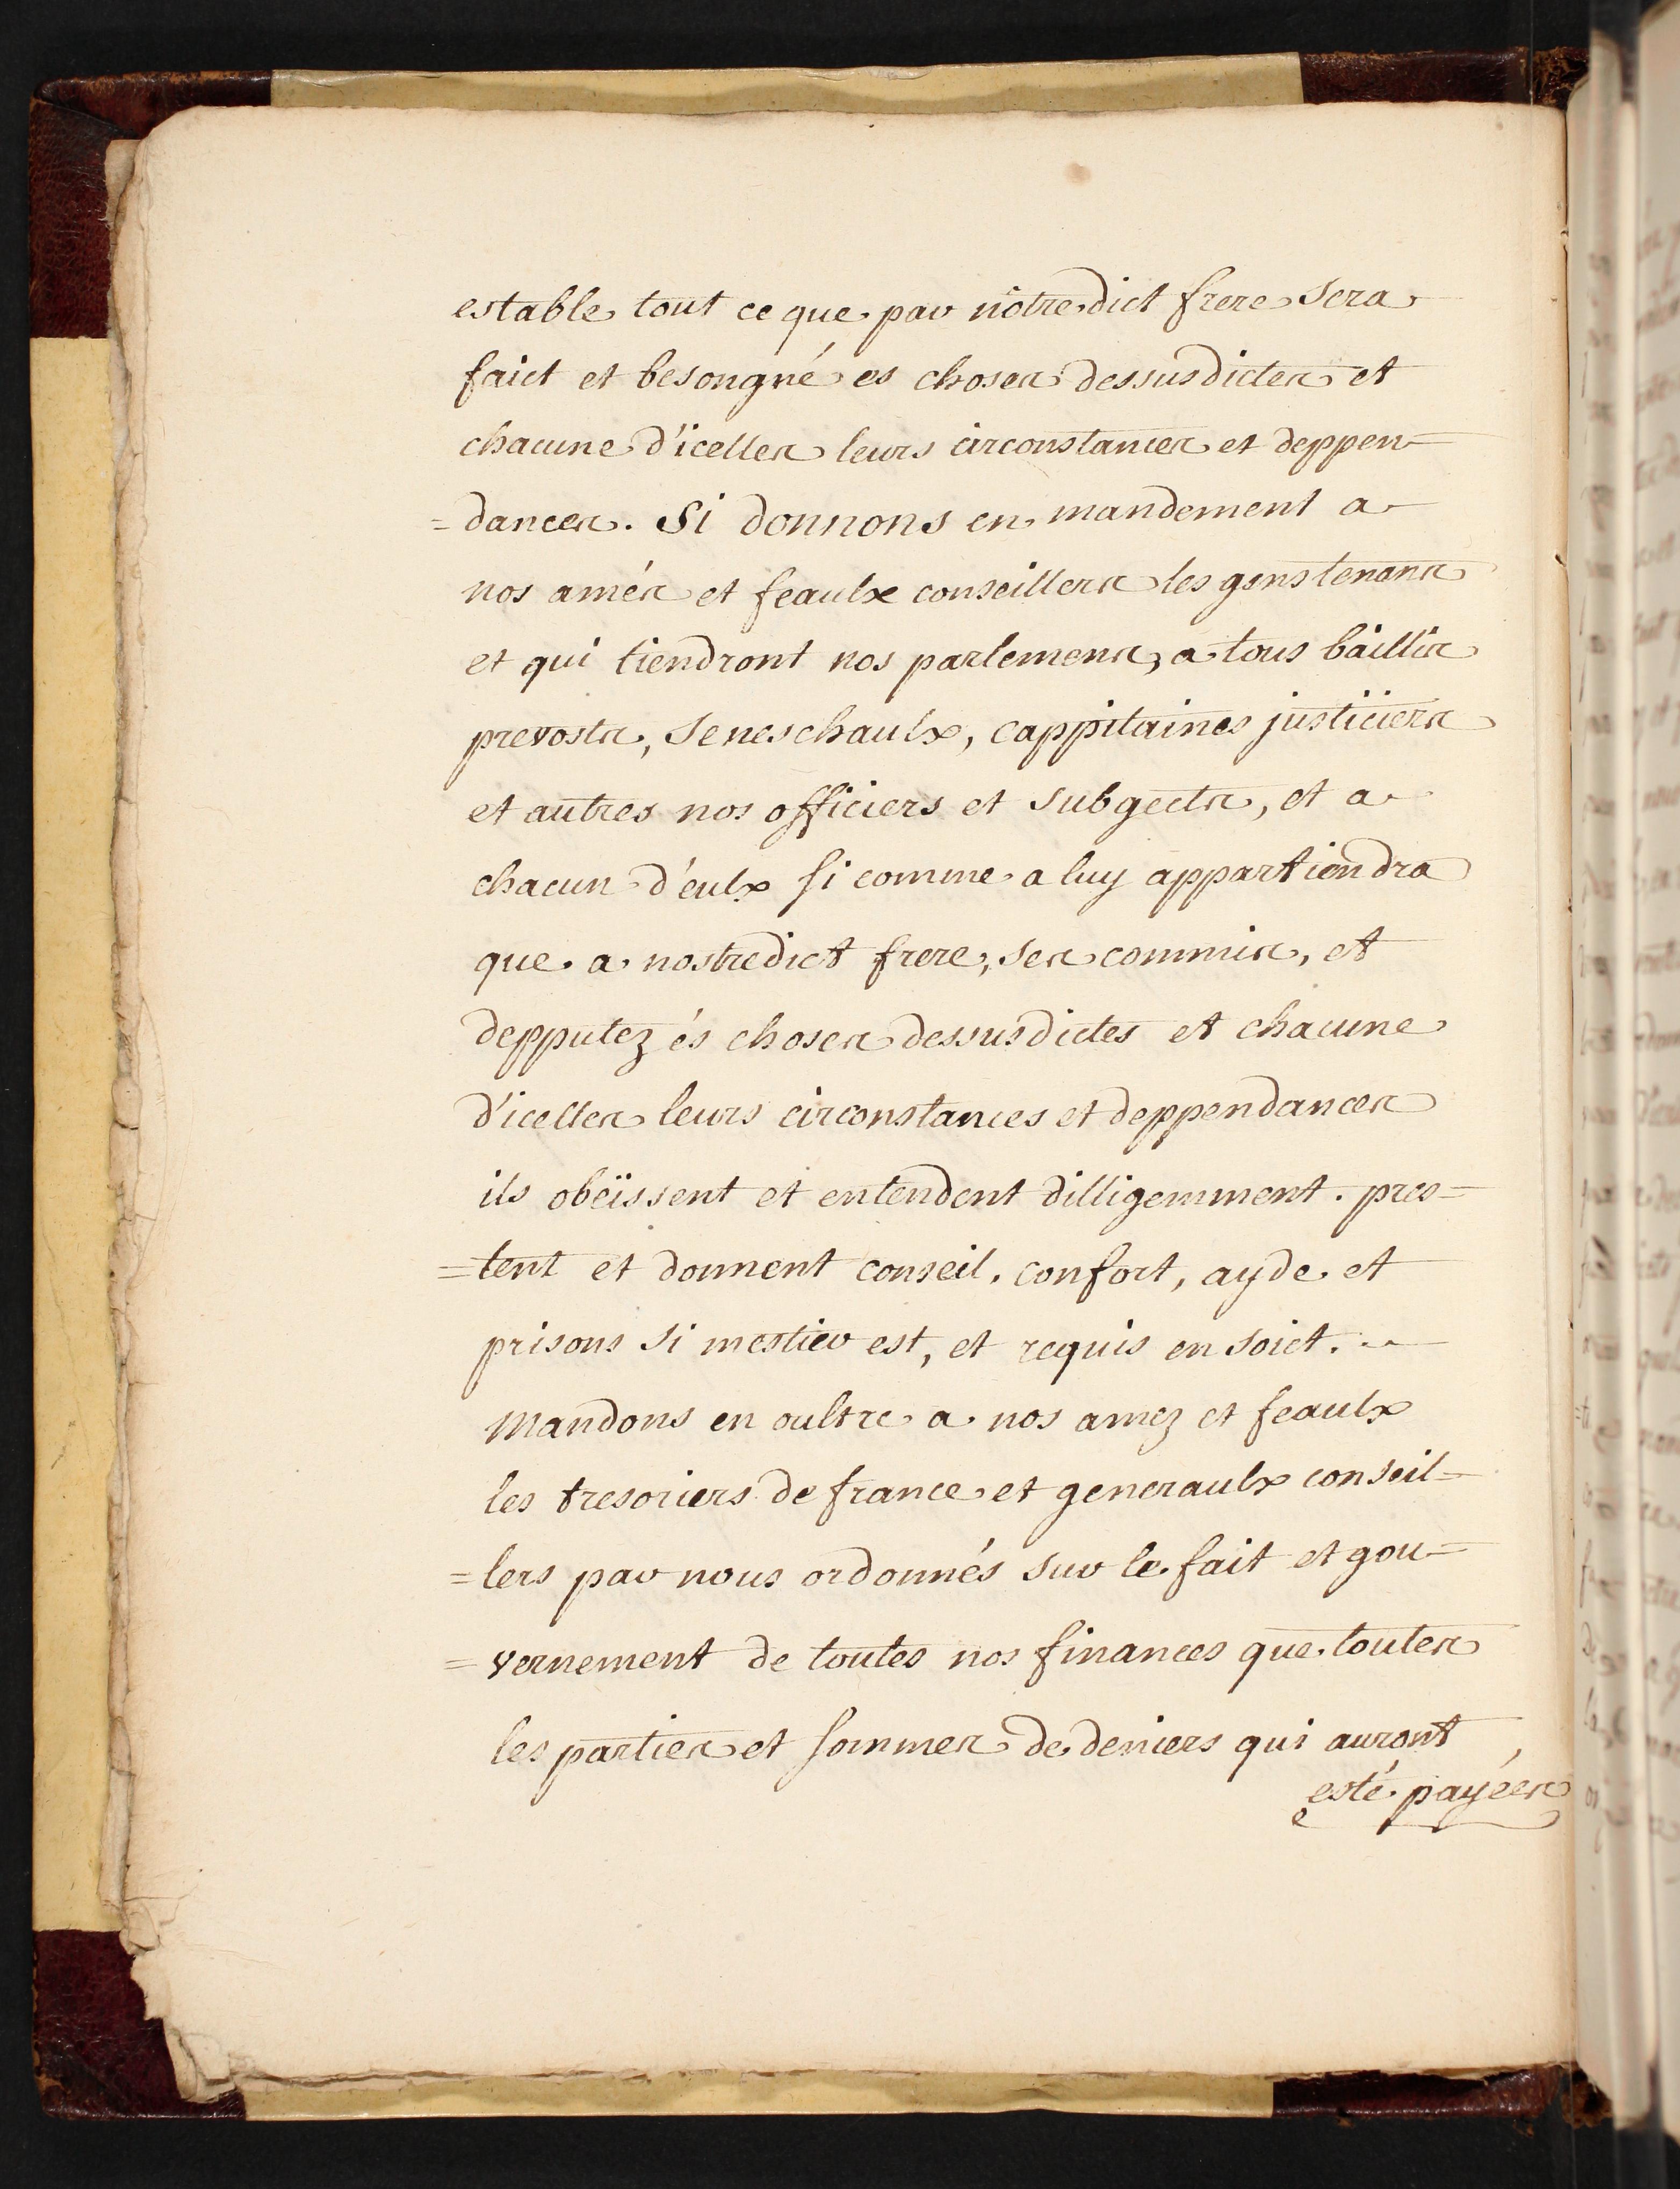 estable tout ce que par nôtredict frere sera
faict et besongné es choses dessusdictes et
chacune d'icelles leurs circonstances et deppen=
=dances. Si donnons en mandement a
nos amés et feaulx conseillers les gens tenans
et qui tiendront nos parlemens, a tous baillis
prevosts, seneschaulx, cappitaines justiciers
et autres nos officiers et subgects, et a
chacun d'eulx si comme a luy appartiendra
que a nostredict frere, ses commis, et
depputez és choses dessusdictes et chacune
d'icelles leurs circonstances et deppendances
ils obëissent et entendent dilligemment. pres=
=tent et donnent conseil, confort, ayde et
prisons si mestier est, et requis en soict.
Mandons en oultre a nos amez et feaulx
les tresoriers de france et generaulx conseil=
=lers par nous ordonnés sur le fait et gou=
=vernement de toutes nos finances que toutes
les parties et sommes de deniers qui auront
esté payées